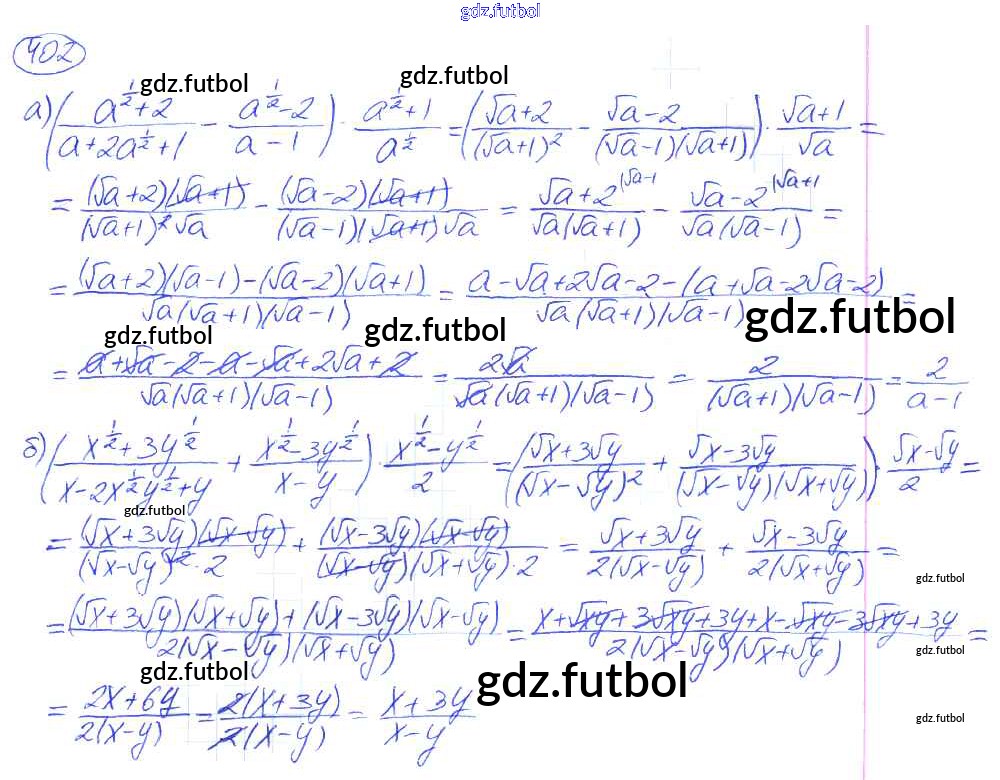 gdz.futbol
402
gdz.futbol gdz.futbol
а) ((a^(1/2)+2)/(a+2a^(1/2)+1) - (a^(1/2)-2)/(a-1)) · (a^(1/2)+1)/a^(1/2) = ((√a+2)/(√a+1)² - (√a-2)/((√a-1)(√a+1))) · (√a+1)/√a =
= ((√a+2)(√a+1))/((√a+1)²√a) - ((√a-2)(√a+1))/((√a-1)(√a+1)√a) = (√a+2^(|√a-1))/(√a(√a+1)) - (√a-2^(|√a+1))/(√a(√a-1)) =
= ((√a+2)(√a-1)-(√a-2)(√a+1))/(√a(√a+1)(√a-1)) = (a-√a+2√a-2-(a+√a-2√a-2))/(√a(√a+1)(√a-1)) =
gdz.futbol gdz.futbol gdz.futbol
= (a+√a-2-a-√a+2√a+2)/(√a(√a+1)(√a-1)) = 2√a/(√a(√a+1)(√a-1)) = 2/((√a+1)(√a-1)) = 2/(a-1)
б) ((x^(1/2)+3y^(1/2))/(x-2x^(1/2)y^(1/2)+y) + (x^(1/2)-3y^(1/2))/(x-y)) · (x^(1/2)-y^(1/2))/2 = ((√x+3√y)/(√x-√y)² + (√x-3√y)/((√x-√y)(√x+√y))) · (√x-√y)/2 =
gdz.futbol
= ((√x+3√y)(√x-√y))/((√x-√y)²·2) + ((√x-3√y)(√x-√y))/((√x-√y)(√x+√y)·2) = (√x+3√y)/(2(√x-√y)) + (√x-3√y)/(2(√x+√y)) =
gdz.futbol
= ((√x+3√y)(√x+√y)+(√x-3√y)(√x-√y))/(2(√x-√y)(√x+√y)) = (x+√xy+3√xy+3y+x-√xy-3√xy+3y)/(2(√x-√y)(√x+√y)) =
gdz.futbol gdz.futbol gdz.futbol
= (2x+6y)/(2(x-y)) = (2(x+3y))/(2(x-y)) = (x+3y)/(x-y)
gdz.futbol